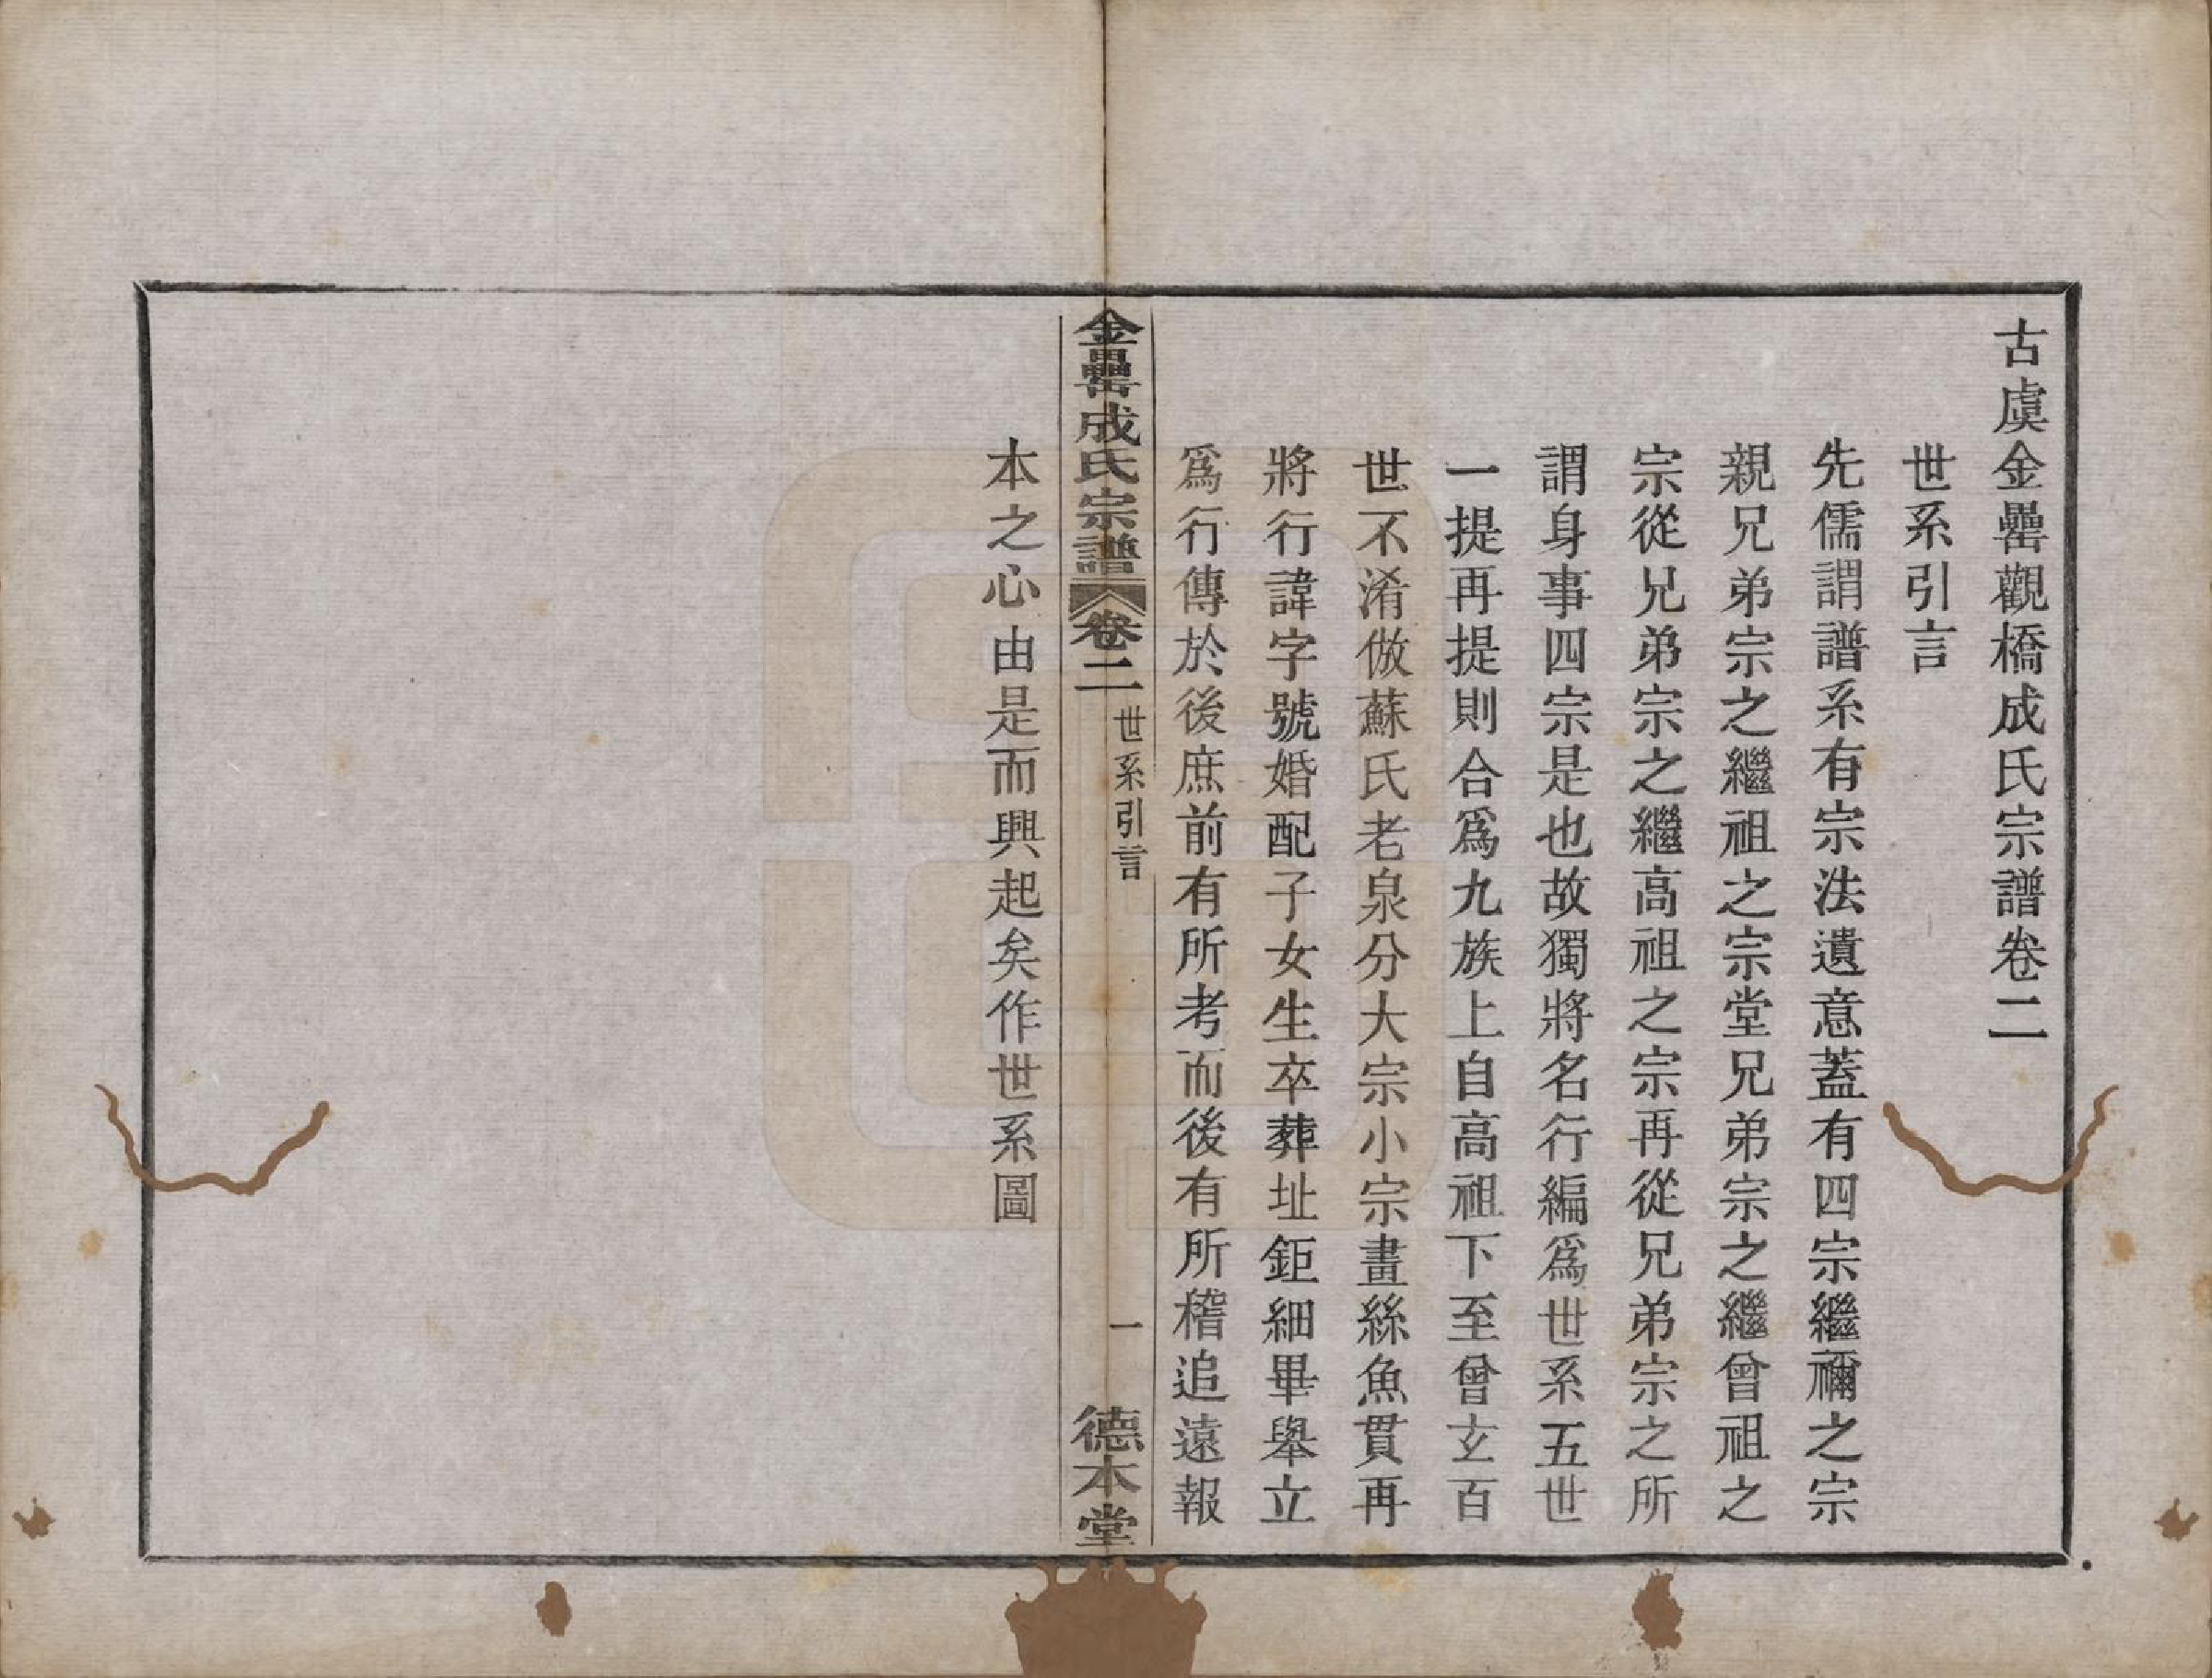 古虞金罍觀橋成氏宗譜卷二
世系引言
先儒謂譜系有宗法遺意蓋有四宗繼禰之宗
親兄弟宗之繼祖之宗堂兄弟宗之繼曾祖之
宗從兄弟宗之繼高祖之宗再從兄弟宗之所
謂身事四宗是也故獨將名行編爲世系五世
一提再提則合爲九族上自高祖下至曾玄百
世不淆倣蘇氏老泉分大宗小宗畫絲魚貫再
將行諱字號婚配子女生卒葬址鉅細畢舉立
爲行傳於後庶前有所考而後有所稽追遠報
金罍成氏宗譜
卷二
世系引言
一
德本堂
本之心由是而興起矣作世系圖